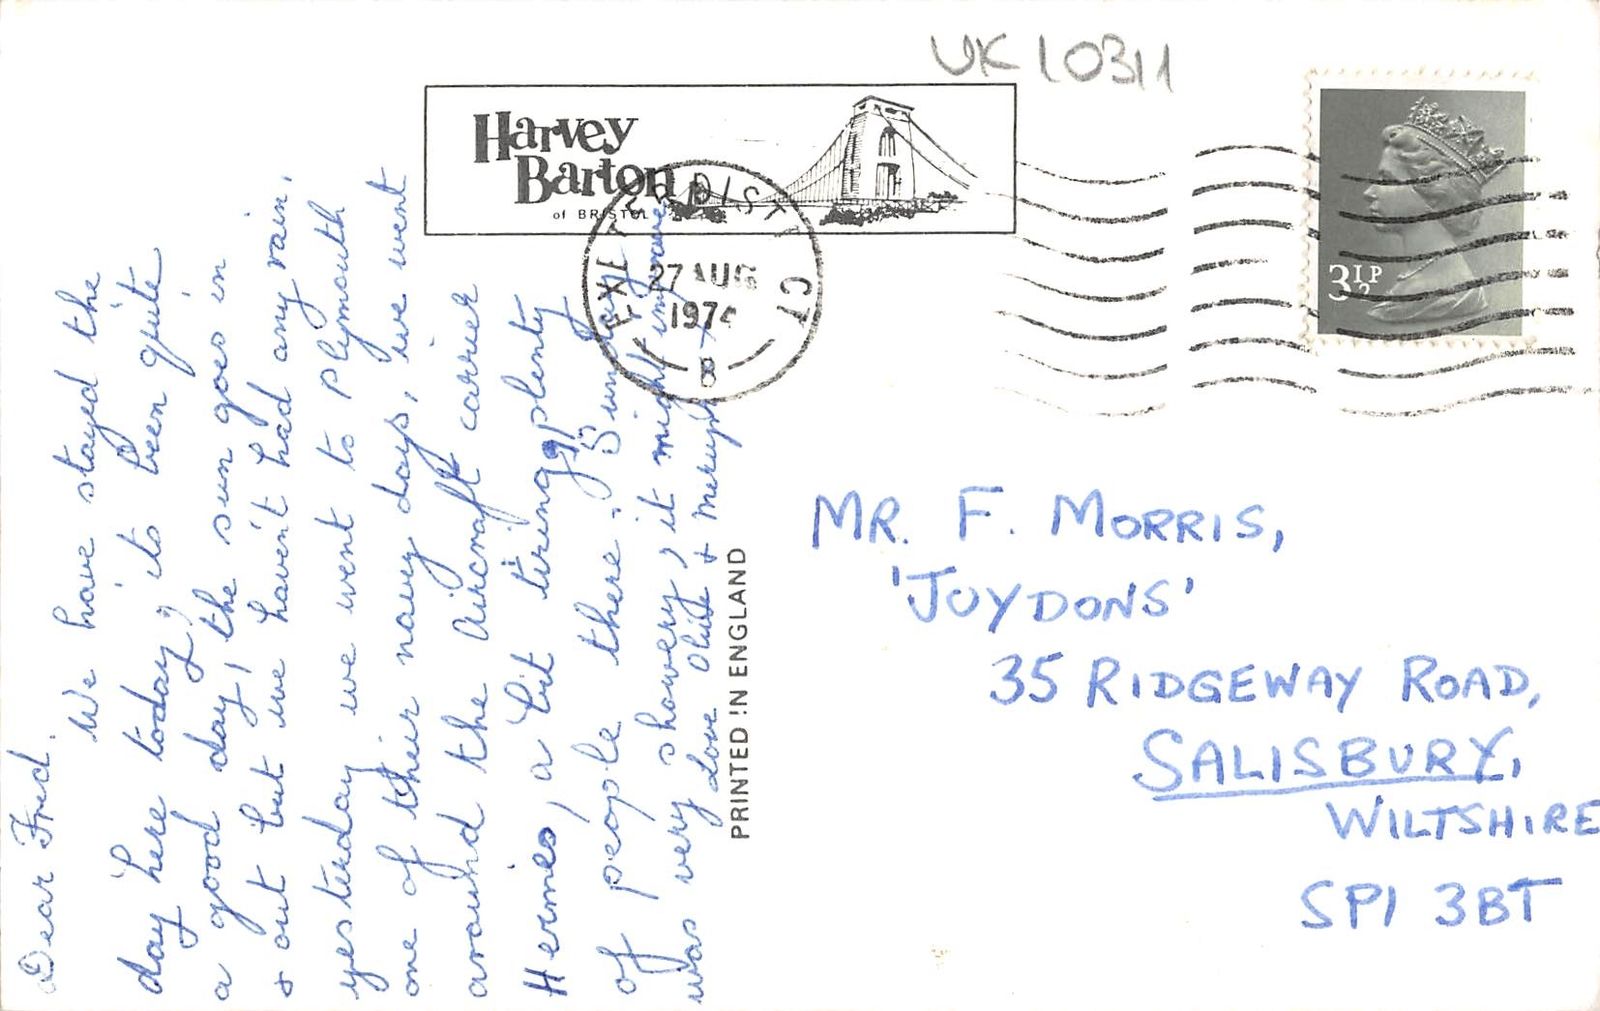 UK 10311
Harvey
Barton
of BRISTOL
EXETER DISTRICT
27 AUG
197
8
3½P
Dear Fred.
We have stayed the
day here today, its been quite
a good day, the sun goes in
& out but we haven't had any rain,
yesterday we went to Plymouth
one of their navy days, we went
around the aircraft carrier
Hermes, a bit tiring, plenty
of people there. Sunday
was very showery, it might improve
Love Olive &
PRINTED IN ENGLAND
MR. F. MORRIS,
'JOYDONS'
35 RIDGEWAY ROAD,
SALISBURY,
WILTSHIRE
SP1 3BT